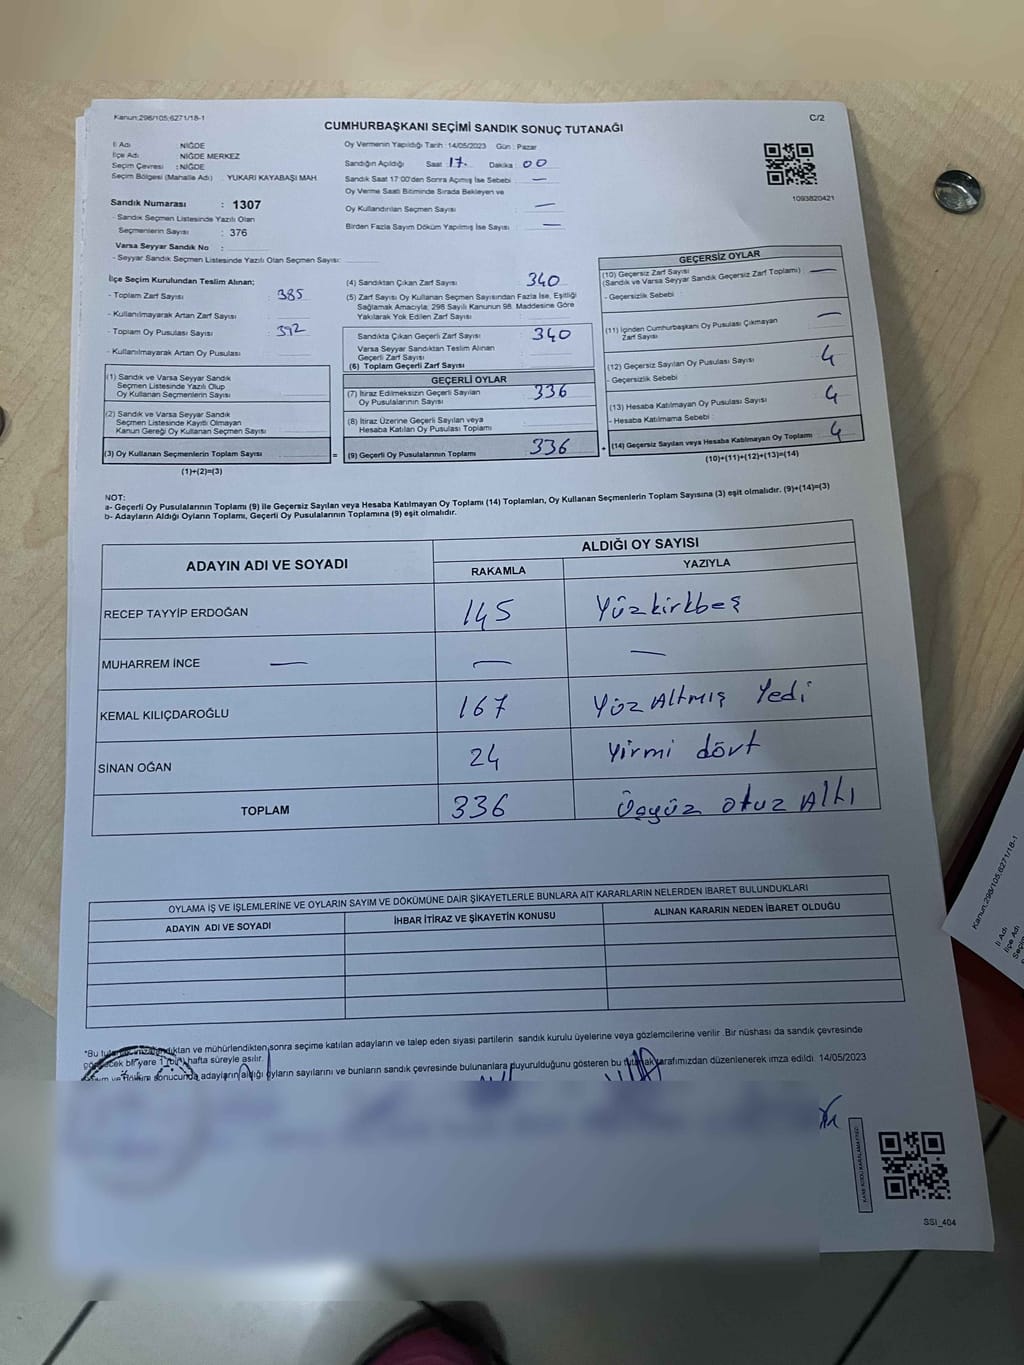 Kanun:298/105;6271/18-1
C/2
CUMHURBAŞKANI SEÇİMİ SANDIK SONUÇ TUTANAĞI
İl Adı : NİĞDE
İlçe Adı : NİĞDE MERKEZ
Seçim Çevresi : NİĞDE
Seçim Bölgesi (Mahalle Adı) : YUKARI KAYABAŞI MAH.
Sandık Numarası : 1307
- Sandık Seçmen Listesinde Yazılı Olan
Seçmenlerin Sayısı : 376
Varsa Seyyar Sandık No :
- Seyyar Sandık Seçmen Listesinde Yazılı Olan Seçmen Sayısı:
Oy Vermenin Yapıldığı Tarih : 14/05/2023 Gün : Pazar
Sandığın Açıldığı Saat : 17. Dakika : 00
Sandık Saat 17:00'den Sonra Açılmış İse Sebebi : —
Oy Verme Saati Bitiminde Sırada Bekleyen ve
Oy Kullandırılan Seçmen Sayısı : —
Birden Fazla Sayım Döküm Yapılmış İse Sayısı : —
1093820421
İlçe Seçim Kurulundan Teslim Alınan;
- Toplam Zarf Sayısı : 385
- Kullanılmayarak Artan Zarf Sayısı :
- Toplam Oy Pusulası Sayısı : 392
- Kullanılmayarak Artan Oy Pusulası
(1) Sandık ve Varsa Seyyar Sandık
Seçmen Listesinde Yazılı Olup
Oy Kullanan Seçmenlerin Sayısı :
(2) Sandık ve Varsa Seyyar Sandık
Seçmen Listesinde Kayıtlı Olmayan
Kanun Gereği Oy Kullanan Seçmen Sayısı :
(3) Oy Kullanan Seçmenlerin Toplam Sayısı
(1)+(2)=(3)
=
(4) Sandıktan Çıkan Zarf Sayısı : 340
(5) Zarf Sayısı Oy Kullanan Seçmen Sayısından Fazla İse, Eşitliği
Sağlamak Amacıyla; 298 Sayılı Kanunun 98. Maddesine Göre
Yakılarak Yok Edilen Zarf Sayısı :
Sandıkta Çıkan Geçerli Zarf Sayısı : 340
Varsa Seyyar Sandıktan Teslim Alınan
Geçerli Zarf Sayısı
(6) Toplam Geçerli Zarf Sayısı :
GEÇERLİ OYLAR
(7) İtiraz Edilmeksizin Geçerli Sayılan
Oy Pusulalarının Sayısı : 336
(8) İtiraz Üzerine Geçerli Sayılan veya
Hesaba Katılan Oy Pusulası Toplamı :
(9) Geçerli Oy Pusulalarının Toplamı 336
+
GEÇERSİZ OYLAR
(10) Geçersiz Zarf Sayısı
(Sandık ve Varsa Seyyar Sandık Geçersiz Zarf Toplamı) : —
- Geçersizlik Sebebi :
(11) İçinden Cumhurbaşkanı Oy Pusulası Çıkmayan
Zarf Sayısı : —
(12) Geçersiz Sayılan Oy Pusulası Sayısı : 4
- Geçersizlik Sebebi :
(13) Hesaba Katılmayan Oy Pusulası Sayısı : 4
- Hesaba Katılmama Sebebi :
(14) Geçersiz Sayılan veya Hesaba Katılmayan Oy Toplamı : 4
(10)+(11)+(12)+(13)=(14)
NOT:
a- Geçerli Oy Pusulalarının Toplamı (9) ile Geçersiz Sayılan veya Hesaba Katılmayan Oy Toplamı (14) Toplamları, Oy Kullanan Seçmenlerin Toplam Sayısına (3) eşit olmalıdır. (9)+(14)=(3)
b- Adayların Aldığı Oyların Toplamı, Geçerli Oy Pusulalarının Toplamına (9) eşit olmalıdır.
ADAYIN ADI VE SOYADI
ALDIĞI OY SAYISI
RAKAMLA YAZIYLA
RECEP TAYYİP ERDOĞAN 145 Yüzkirkbeş
MUHARREM İNCE — — —
KEMAL KILIÇDAROĞLU 167 Yüz Altmış Yedi
SİNAN OĞAN 24 Yirmi dört
TOPLAM 336 Üçyüz otuz Altı
OYLAMA İŞ VE İŞLEMLERİNE VE OYLARIN SAYIM VE DÖKÜMÜNE DAİR ŞİKAYETLERLE BUNLARA AİT KARARLARIN NELERDEN İBARET BULUNDUKLARI
ADAYIN ADI VE SOYADI İHBAR İTİRAZ VE ŞİKAYETİN KONUSU ALINAN KARARIN NEDEN İBARET OLDUĞU
"Bu ve mühürlendikten sonra seçime katılan adayların ve talep eden siyasi partilerin sandık kurulu üyelerine veya gözlemcilerine verilir .Bir nüshası da sandık çevresinde
bir yere 1 (bir) hafta süreyle asılır.
sonucunda adayların aldığı oyların sayılarını ve bunların sandık çevresinde bulunanlara duyurulduğunu gösteren bu tutanak tarafımızdan düzenlenerek imza edildi. 14/05/2023
SSI_404
Kanun:298/105;6271/18-1
İl Adı
İlçe Adı
Seçim